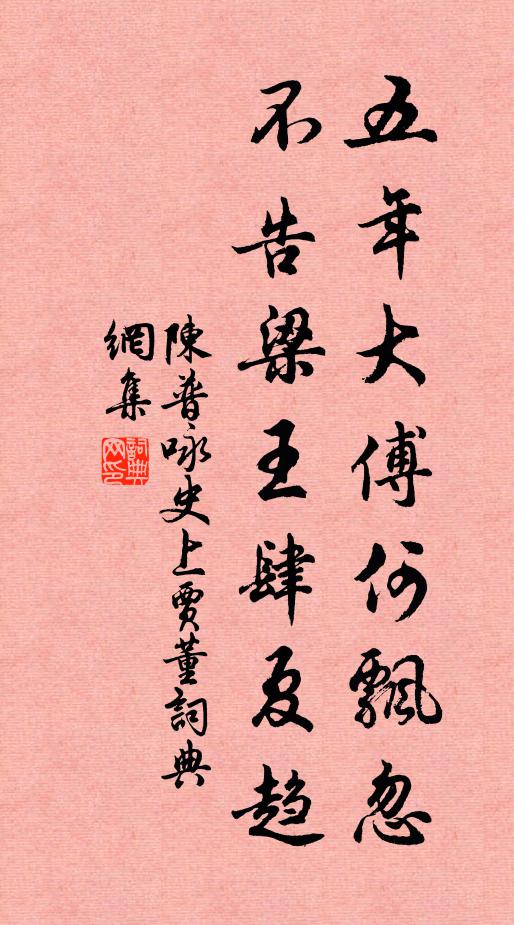 五年大傅何飄忽
不告梁王肆夏趋
陳普咏史上賈董詞典
網集
詞典
网印